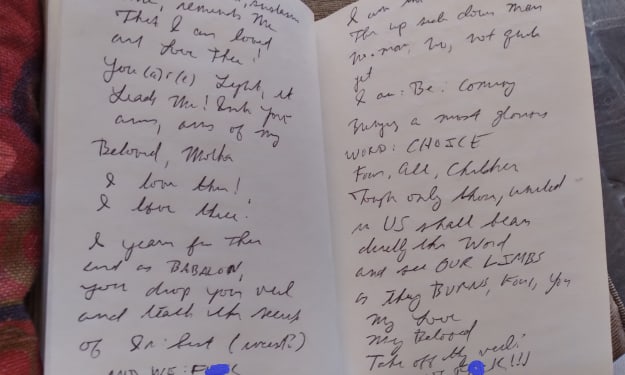 reminds me
That I can loved
and Love Thee!
You(a)r(e) Light, it
Leads Me! Into your
arms, arms of my
Beloved, Mother
I love thee!
I love thee!
I yearn for thee
and as BABALON,
you drop your veil
and teach the secret
of In:best (incest?)
AND WE: F
I am
The up side down man
No-man, No, not quite
yet
I am: Be: Coming
a most glorious
WORD: CHOICE
Four, all, Children
Though only thou, united
in US shall bear
directly the Word
and see OUR LIMBS
as they BURNS, Four, You
My Love
My Beloved
Take off thy veil!
K!!!